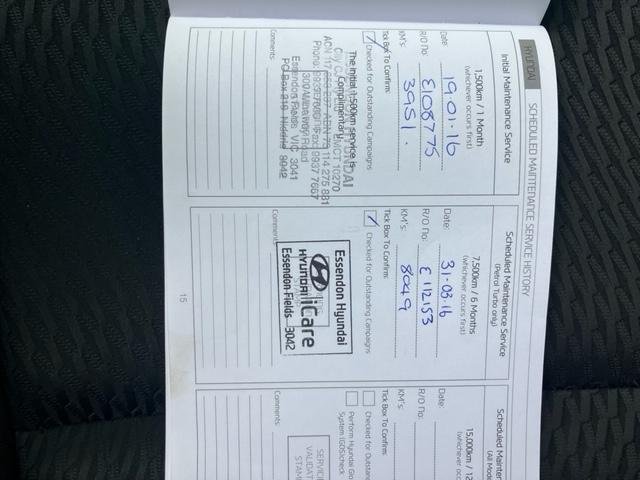 HYUNDAI SCHEDULED MAINTENANCE SERVICE HISTORY
Initial Maintenance Service
1,500km / 1 Month
(whichever occurs first)
Date: 19.01.16
R/O No: E108775
KM's: 3951.
Tick Box To Confirm:
Checked for Outstanding Campaigns
The initial 1,500km service is
Complimentary
HYUNDAI
LMCT 10270
ACN 117 ABN 79 114 275 831
Phone: Fax: 9937 7667
Road
Essendon Fields VIC 3041
PO Box 219 Niddrie 3042
Comments:
Scheduled Maintenance Service
(Petrol Turbo only)
7,500km / 6 Months
(whichever occurs first)
Date: 31.03.16
R/O No: E112153
KM's: 8049
Tick Box To Confirm:
Checked for Outstanding Campaigns
Essendon Hyundai
HYUNDAI iCare
Essendon Fields 3042
Comments:
15
Scheduled Mainten
(All Mode
15,000km / 12
(whichever occ
Date:
R/O No:
KM's:
Tick Box To Confirm:
Checked for Outstan
Perform Hyundai Glo
System (GDS)check
SERVIC
VALIDAT
STAM
Comments: